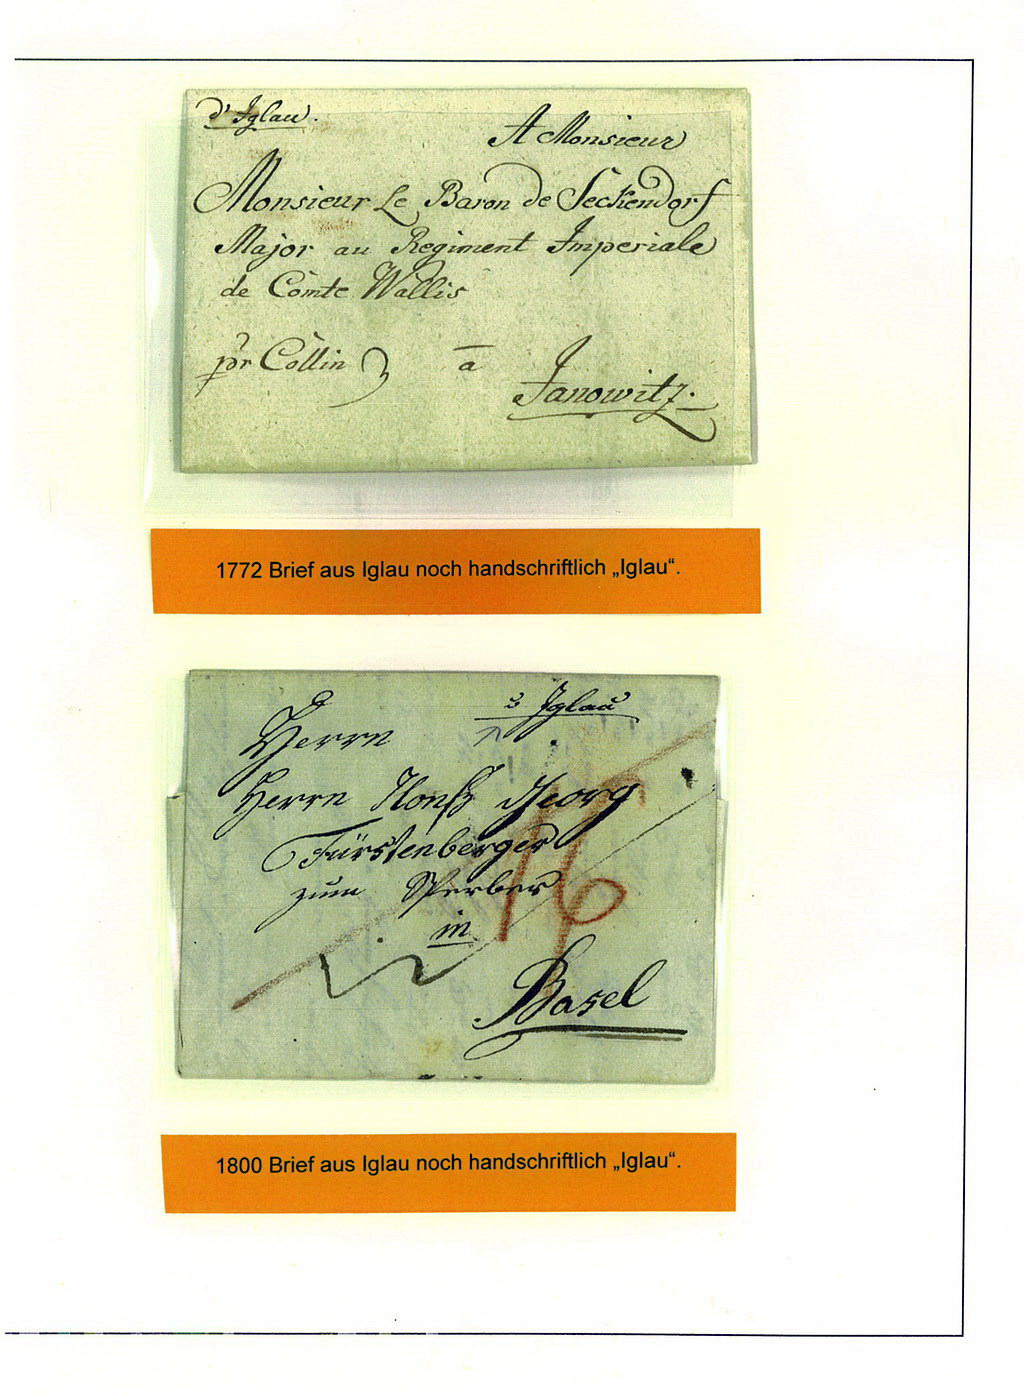 d'Iglau.
A Monsieur
Monsieur Le Baron de Seckendorf
Major au Regiment Imperiale
de Comte Wallis
por Collin
a
Janowitz.
1772 Brief aus Iglau noch handschriftlich „Iglau“.
Iglau
Herrn
Herrn Georg
Fürstenberger
zum Sperber
16
in
Basel
1800 Brief aus Iglau noch handschriftlich „Iglau“.